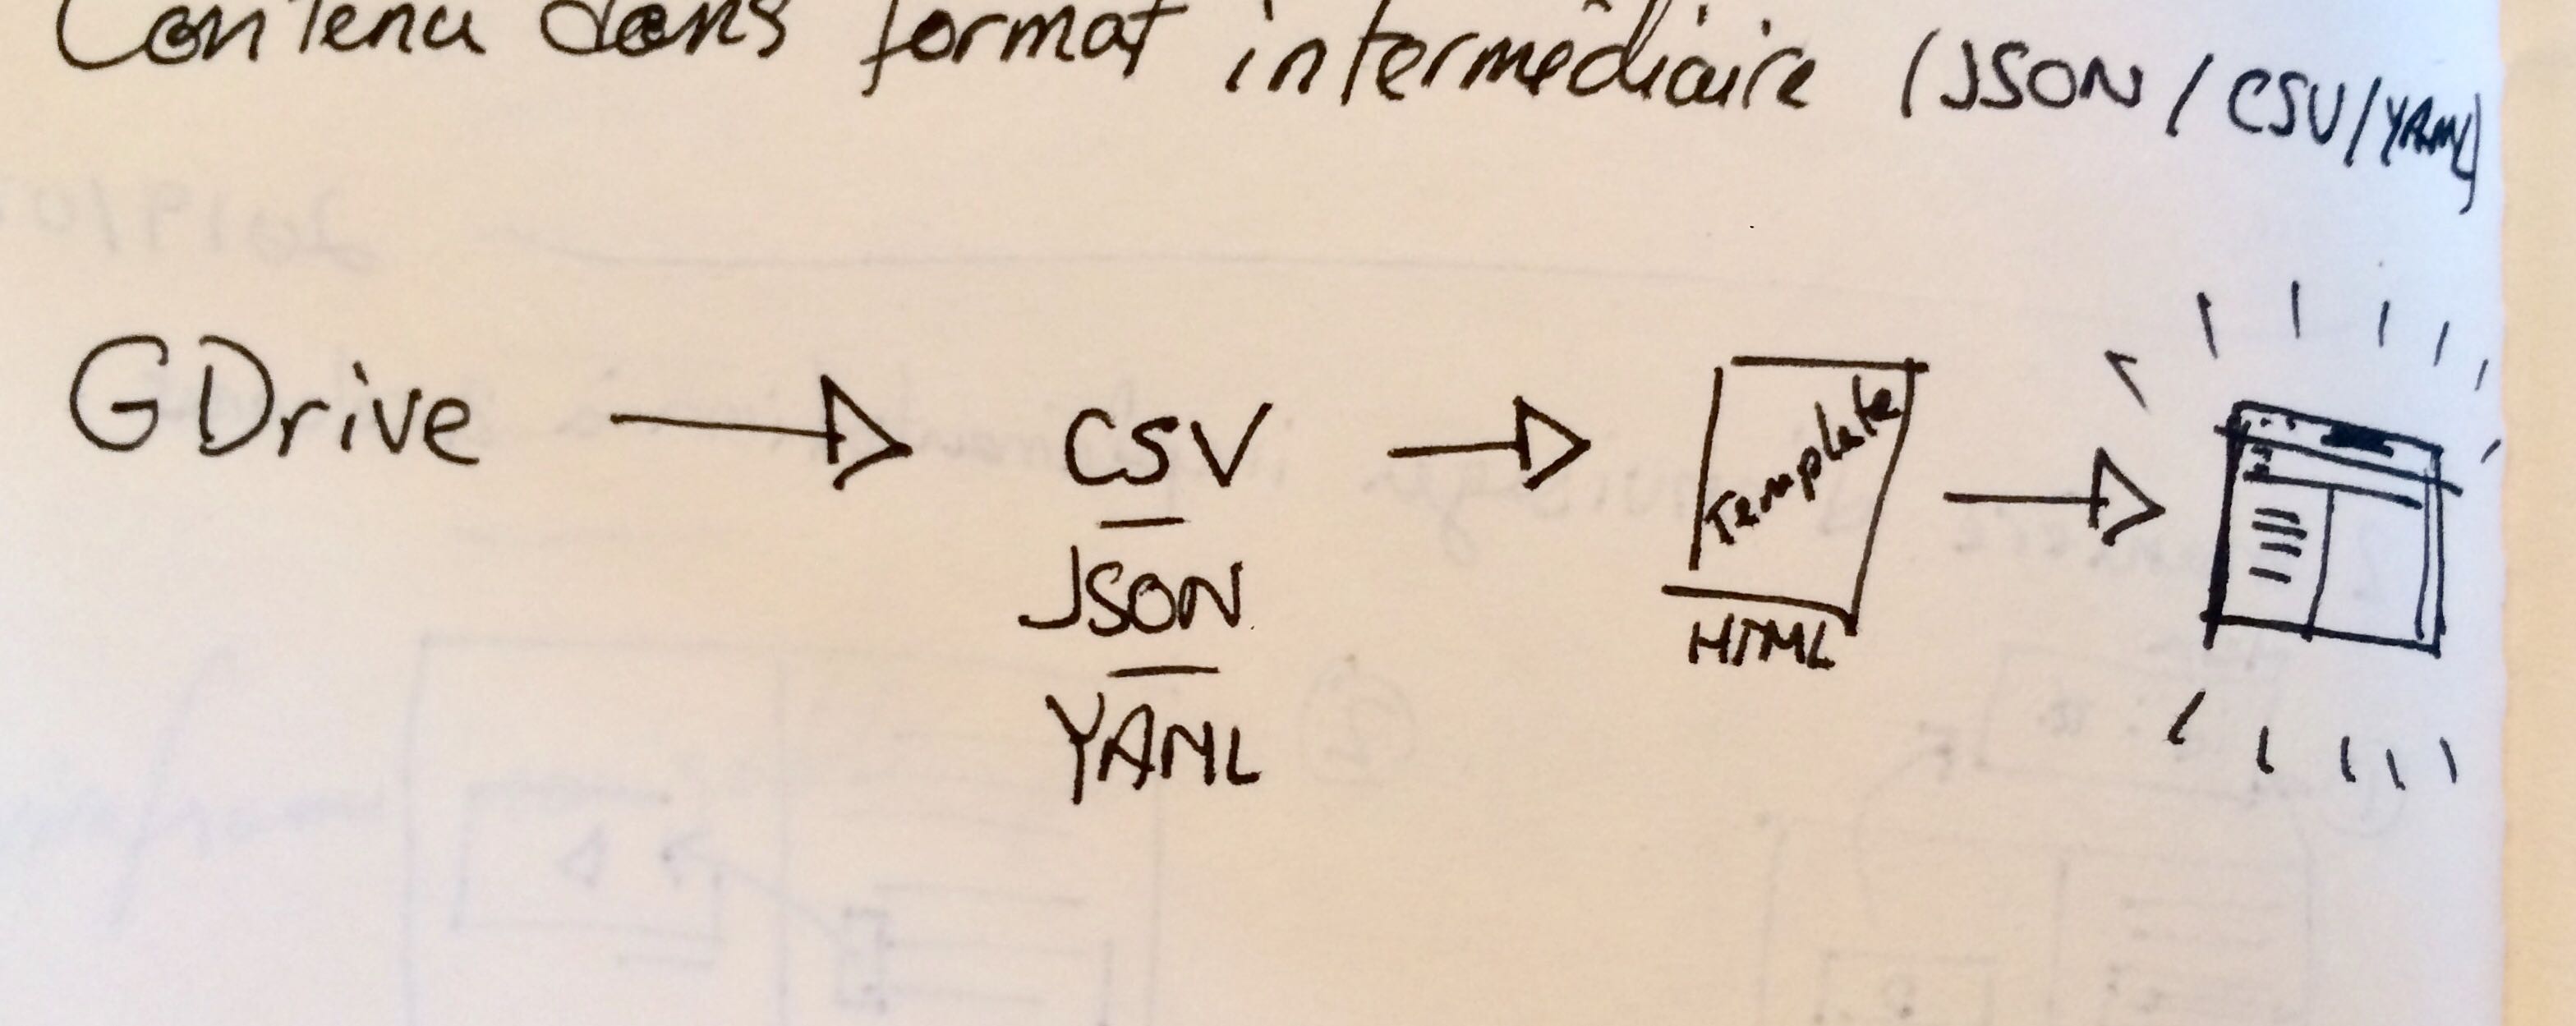 Contenu dans format intermédiaire (JSON / CSV/YAML)
GDrive
CSV
JSON
YAML
Template
HTML